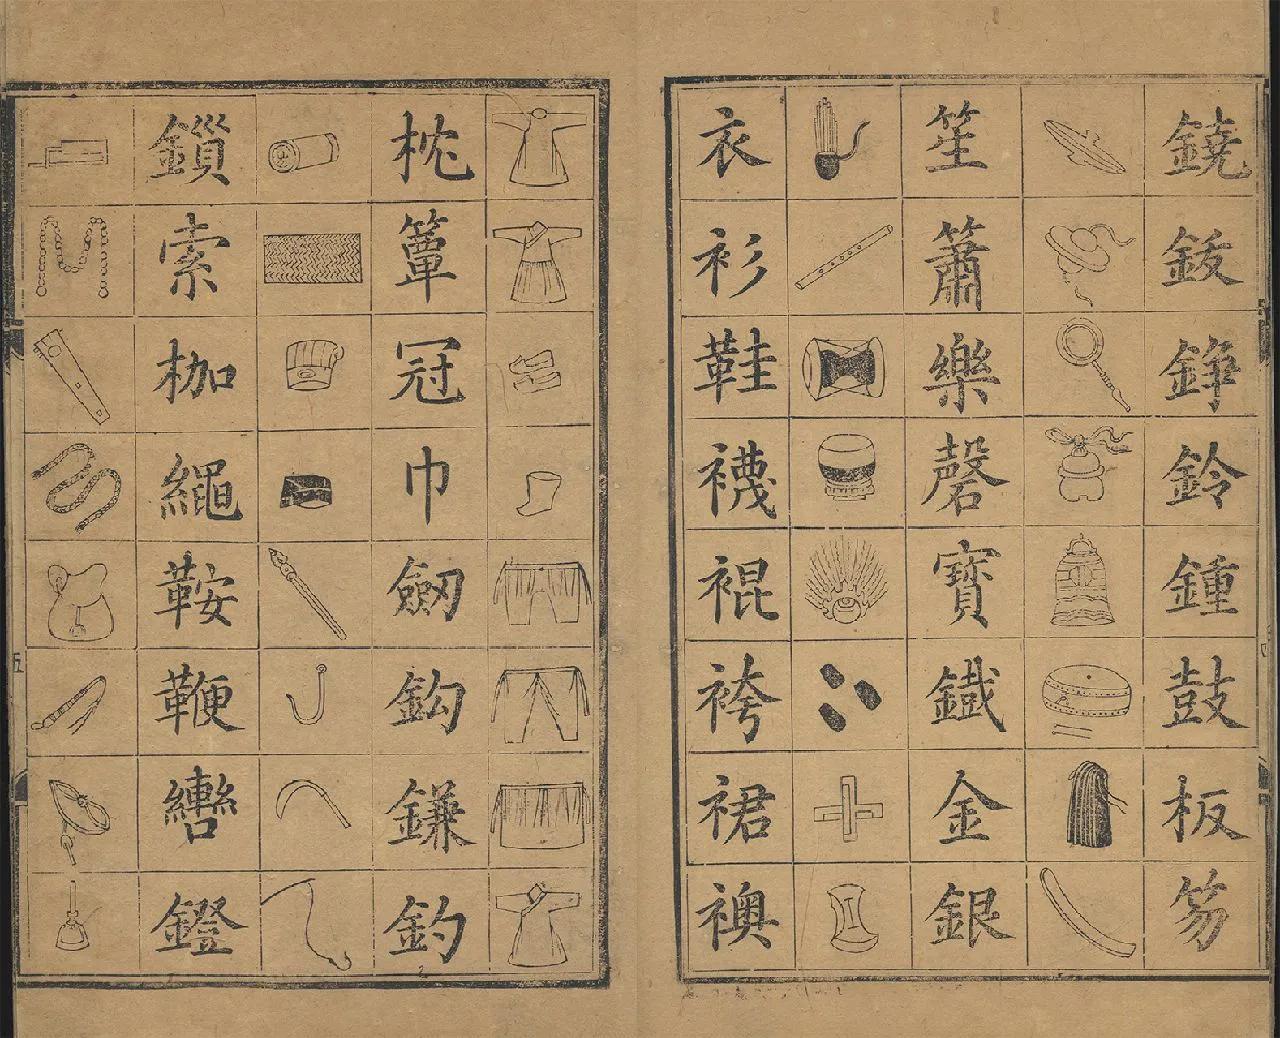 鐃鈸錚鈴鍾鼓板笏
笙簫樂磬寶鐡金銀
衣衫鞋襪裩袴裙襖
枕簟冠巾劒鈎鎌釣
鎻索枷繩鞍鞭轡鐙
五